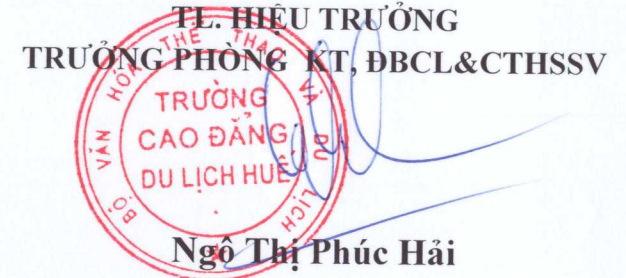 TL. HIỆU TRƯỞNG
TRƯỞNG PHÒNG KT, ĐBCL&CTHSSV
BỘ VĂN HÓA THỂ THAO VÀ DU LỊCH
TRƯỜNG
CAO ĐẲNG
DU LỊCH HUẾ
Ngô Thị Phúc Hải